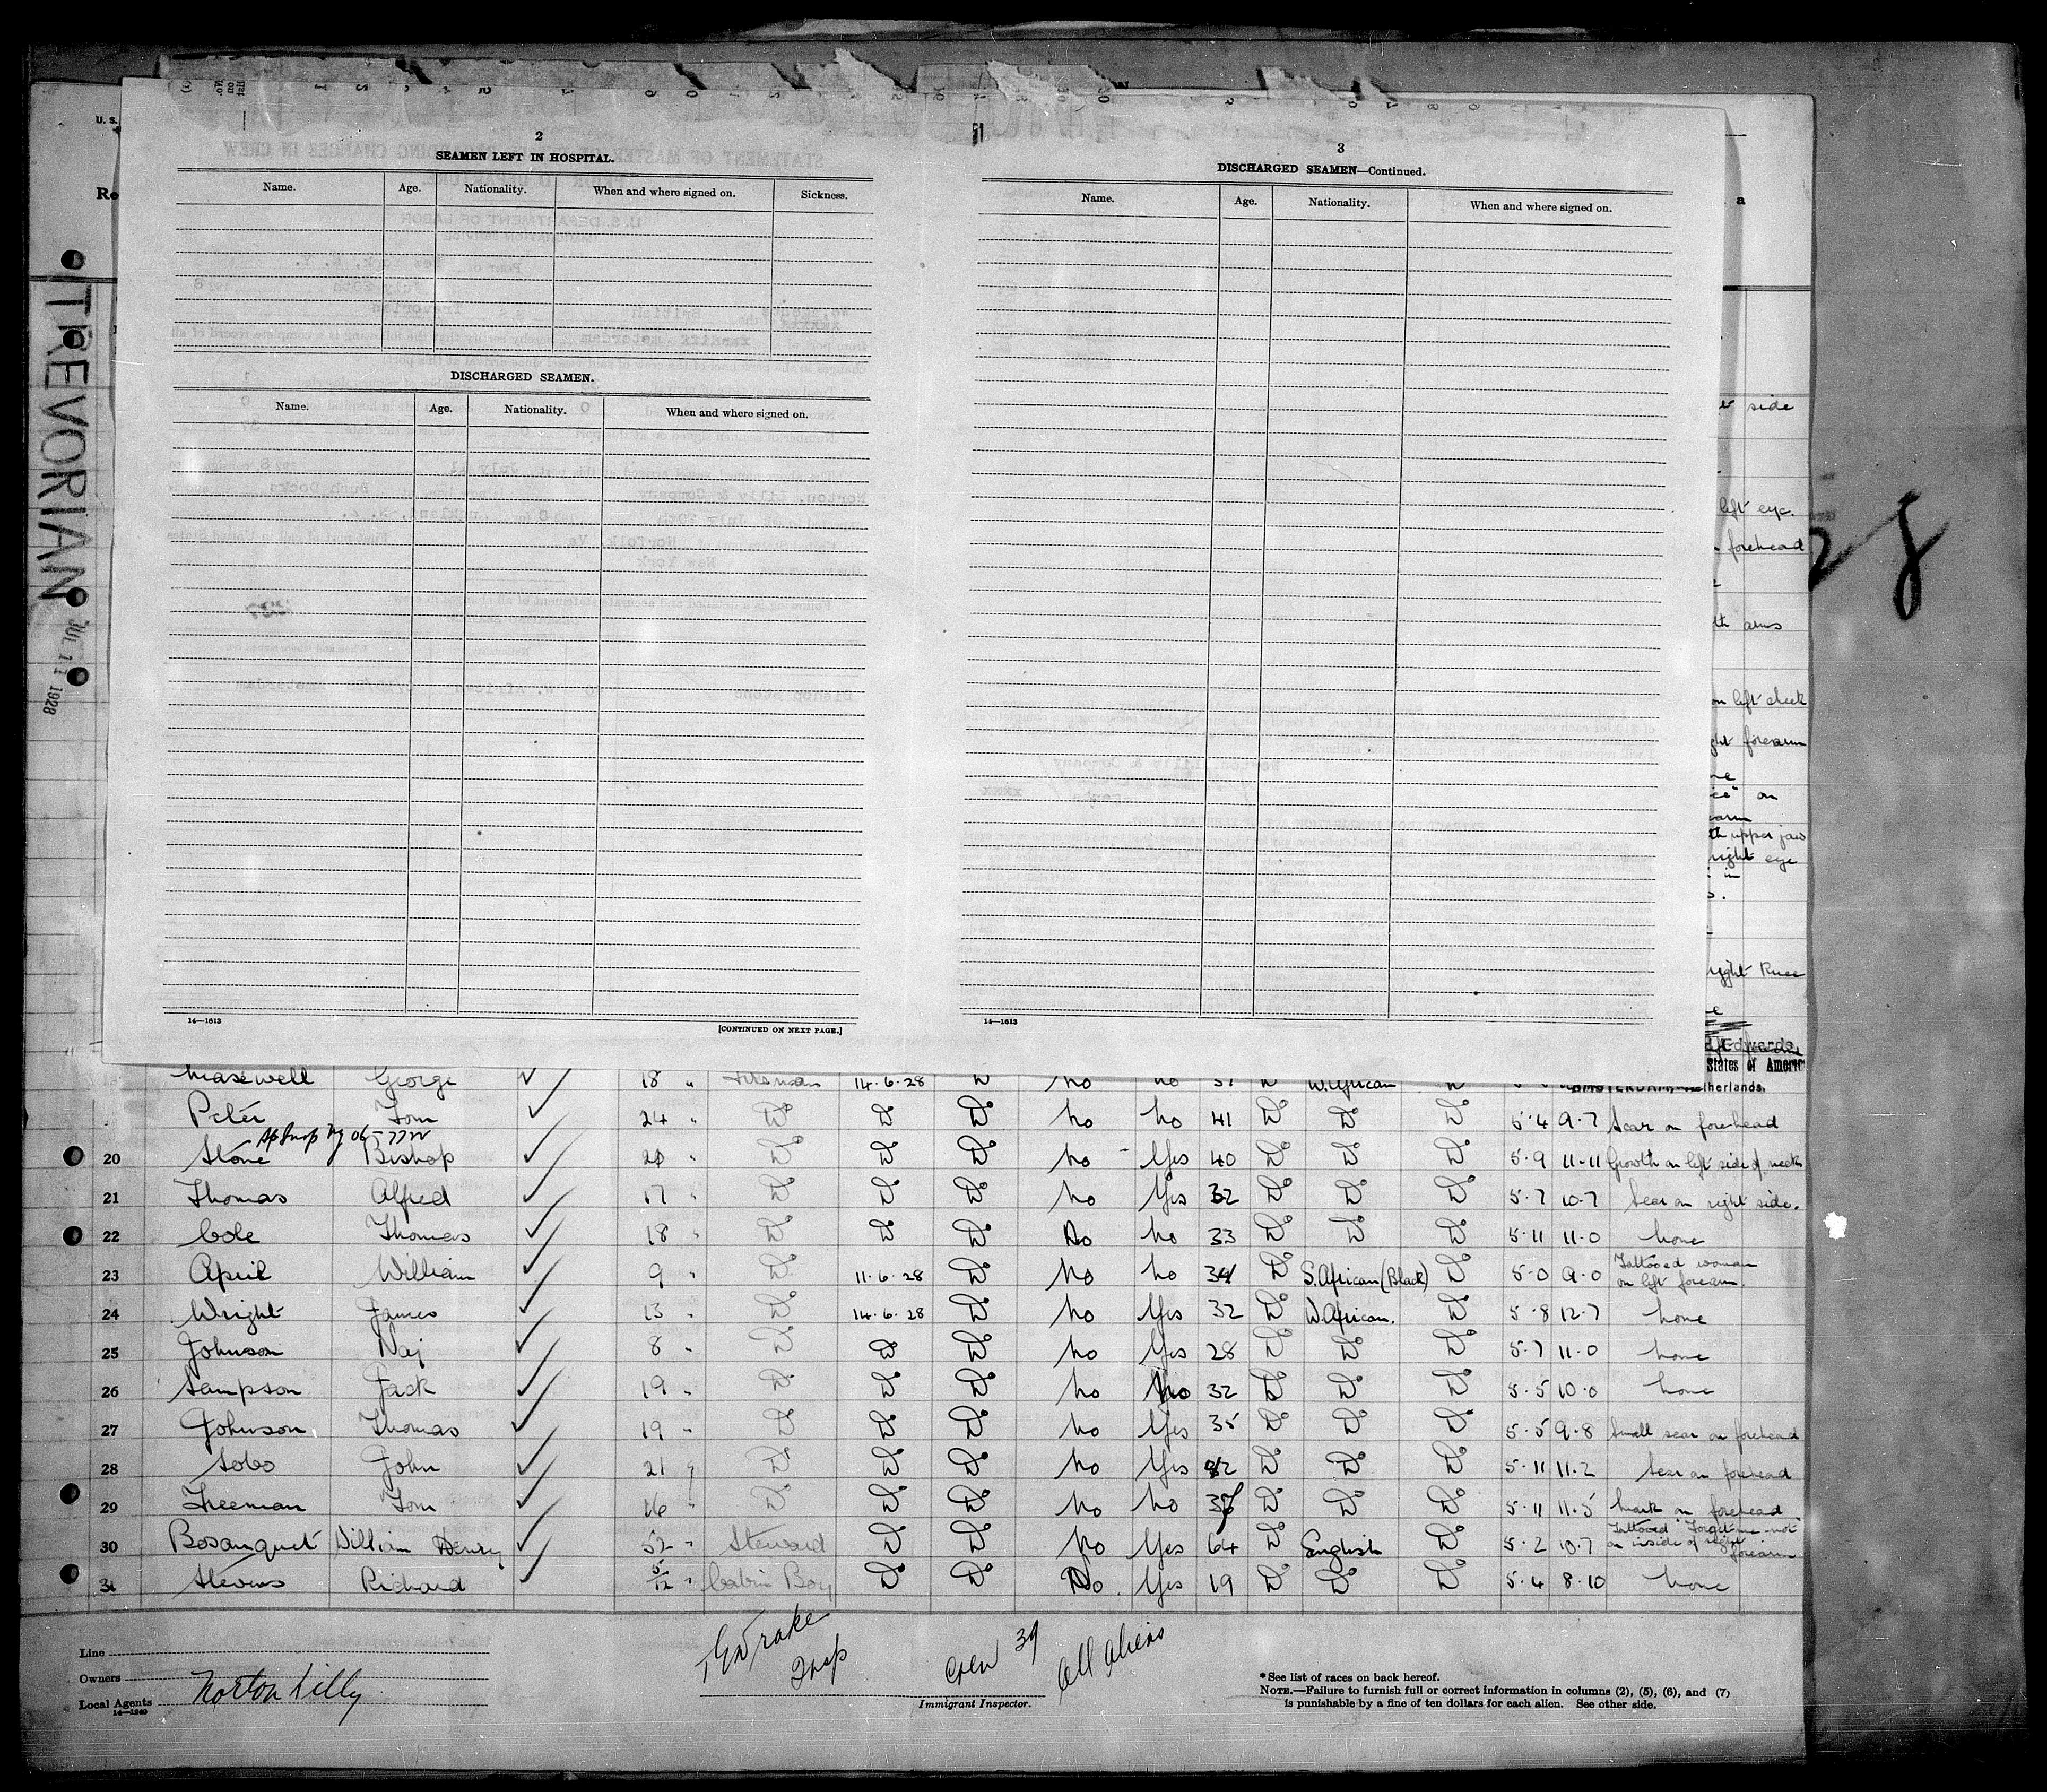 TREVORIAN
JUL 11 1928
U. S.
Re
a
28
2
SEAMEN LEFT IN HOSPITAL.
Name. Age. Nationality. When and where signed on. Sickness.
DISCHARGED SEAMEN.
Name. Age. Nationality. When and where signed on.
14—1613 [CONTINUED ON NEXT PAGE.]
3
DISCHARGED SEAMEN—Continued.
Name. Age. Nationality. When and where signed on.
14—1613
side
left eye.
forehead
arms
on left cheek
forearm
on
upper jaw
right eye
in
Knee
Edwards
States of Americ
therlands.
Maxwell George ✓ 18 " Fireman 14.6.28 Do No No 37 Do W. African Do
Peter Tom ✓ 24 " Do Do Do No No 41 Do Do Do 5.4 9.7 Scar on forehead
20 Stone Bishop ✓ 20 " Do Do Do No - Yes 40 Do Do Do 5.9 11.11 Growth on left side of neck
21 Thomas Alfred ✓ 17 " Do Do Do No Yes 32 Do Do Do 5.7 10.7 Scar on right side.
22 Cole Thomas ✓ 18 " Do Do Do No No 33 Do Do Do 5.11 11.0 None
23 April William ✓ 9 " Do 11.6.28 Do No No 34 Do S. African (Black) Do 5.0 9.0 Tattooed woman on left forearm.
24 Wright James ✓ 13 " Do 14.6.28 Do No Yes 32 Do W. African. Do 5.8 12.7 None
25 Johnson Nej ✓ 8 " Do Do Do No Yes 28 Do Do Do 5.7 11.0 None
26 Sampson Jack ✓ 19 " Do Do Do No No 32 Do Do Do 5.5 10.0 None
27 Johnson Thomas ✓ 19 " Do Do Do No Yes 35 Do Do Do 5.5 9.8 Small scar on forehead
28 Sobo John ✓ 21 " Do Do Do No Yes 32 Do Do Do 5.11 11.2 Scar on forehead
29 Freeman Tom ✓ 16 " Do Do Do No No 37 Do Do Do 5.11 11.5 Mark on forehead
30 Bosanquet William Henry ✓ 52 " Steward Do Do No Yes 64 Do English Do 5.2 10.7 Tattooed "Forget me not" on inside of right forearm
31 Stevens Richard ✓ 5/12 " Cabin Boy Do Do No. Yes 19 Do Do Do 5.4 8.10 None
Line
Owners
Local Agents Norton Lilly
14—1240
Drake
Insp
Crew 39
All Aliens
Immigrant Inspector.
*See list of races on back hereof.
NOTE.—Failure to furnish full or correct information in columns (2), (5), (6), and (7)
is punishable by a fine of ten dollars for each alien. See other side.